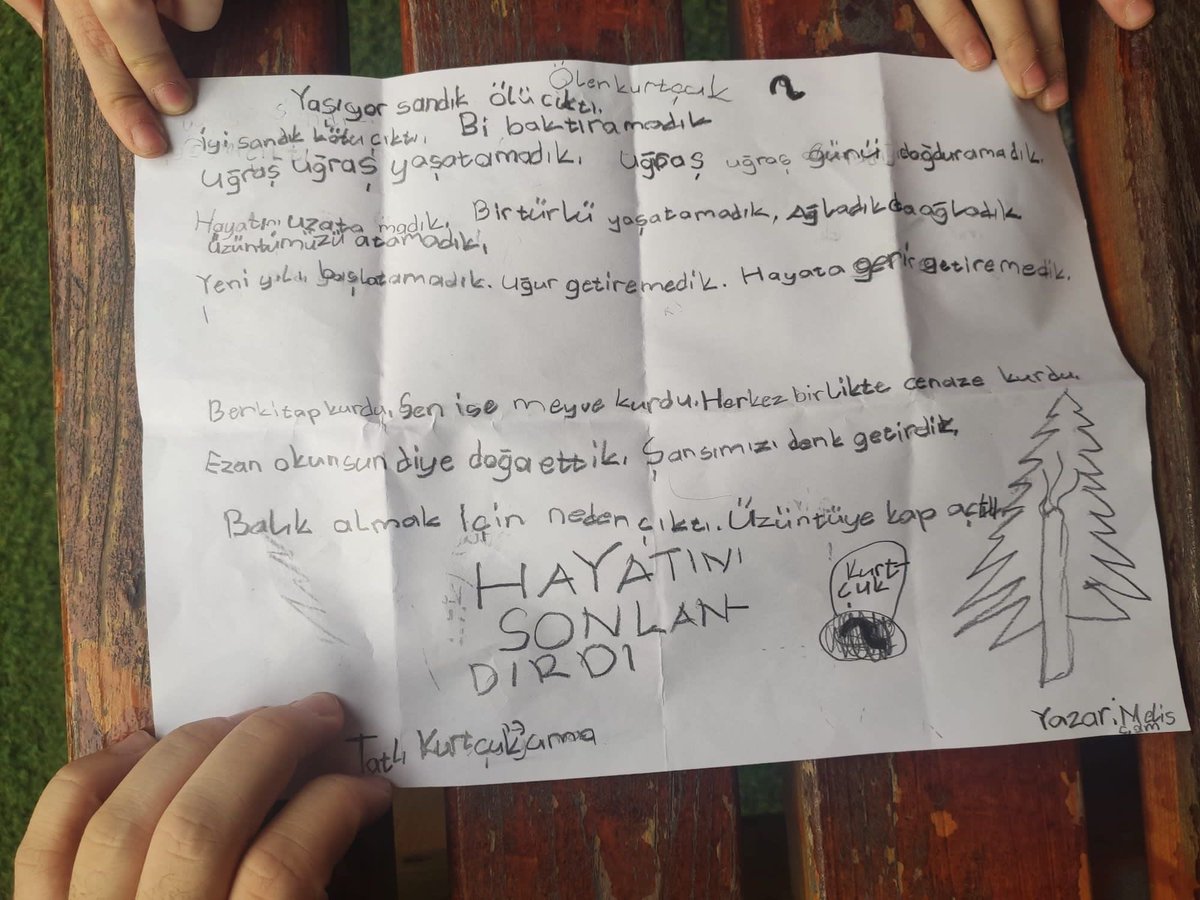 Ölenkurtçuk
Yaşıyor sandık ölü çıktı.
İyi sandık kötü çıktı. Bi baktıramadık
Uğraş uğraş yaşatamadık. Uğraş uğraş günü doğduramadık.
Hayatını uzatamadık. Bir türlü yaşatamadık, Ağladık da ağladık
üzüntümüzü atamadık.
Yeni yılı başlatamadık. Uğur getiremedik. Hayata gerir getiremedik.
Ben kitap kurdu. Sen ise meyve kurdu. Herkez birlikte cenaze kurdu.
Ezan okunsun diye doğa ettik. Şansımızı denk getirdik.
Balık almak için neden çıktı. Üzüntüye kap açtı.
HAYATINI
SONLAN-
DIRDI
Kurt-
çuk
Tatlı Kurtçuk
Yazar: Melis
çam